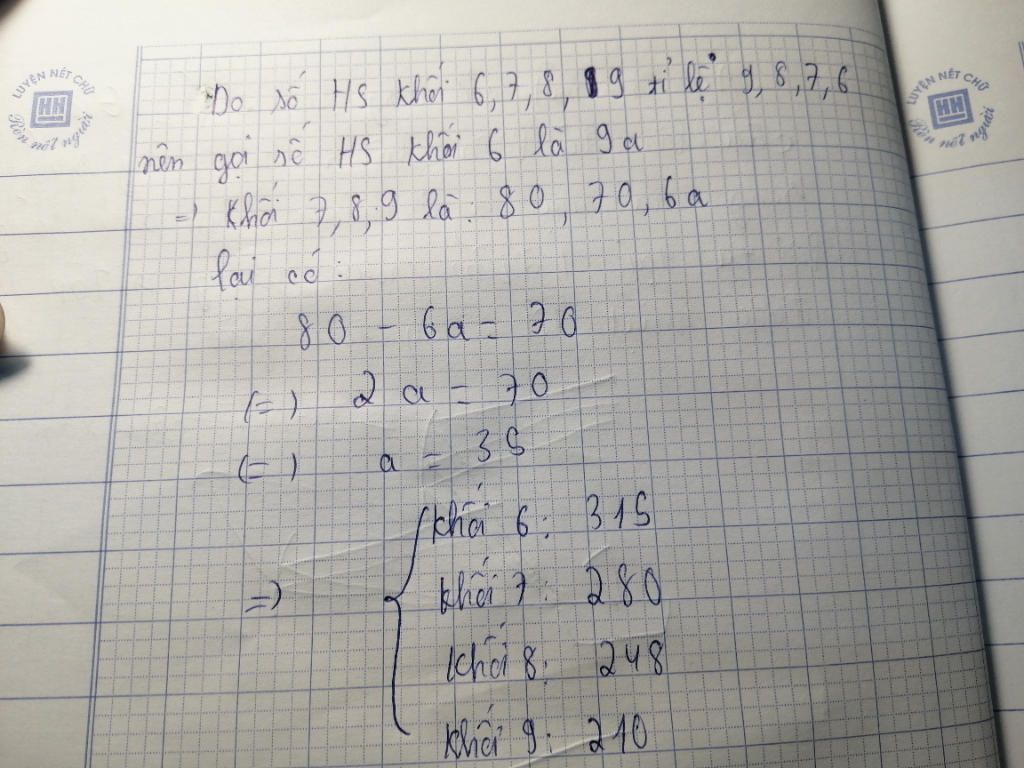 LUYỆN NÉT CHỮ
HH
Rèn nết người
LUYỆN NÉT CHỮ
HH
Rèn nết người
Do số HS khối 6, 7, 8, 9 tỉ lệ 9, 8, 7, 6
nên gọi số HS khối 6 là 9a
=) Khối 7, 8, 9 là: 8a, 7a, 6a
lại có:
8a - 6a = 70
(=) 2a = 70
(=) a = 35
=)
khối 6: 315
khối 7: 280
khối 8: 248
khối 9: 210